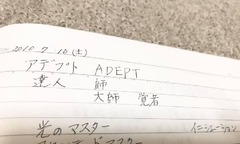 2010 7. 10 (土)
アデプト ADEPT
達人 師
大師 覚者
光のマスター
イニシエーション